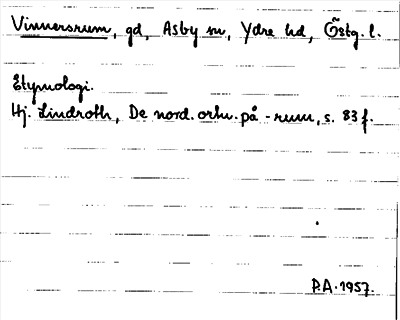 Vinnersrum, gd, Asby sn, Ydre hd, Östg. l.
Etymologi.
Hj. Lindroth, De nord. ortn. på -rum, s. 83 f.
P.A. 1957.